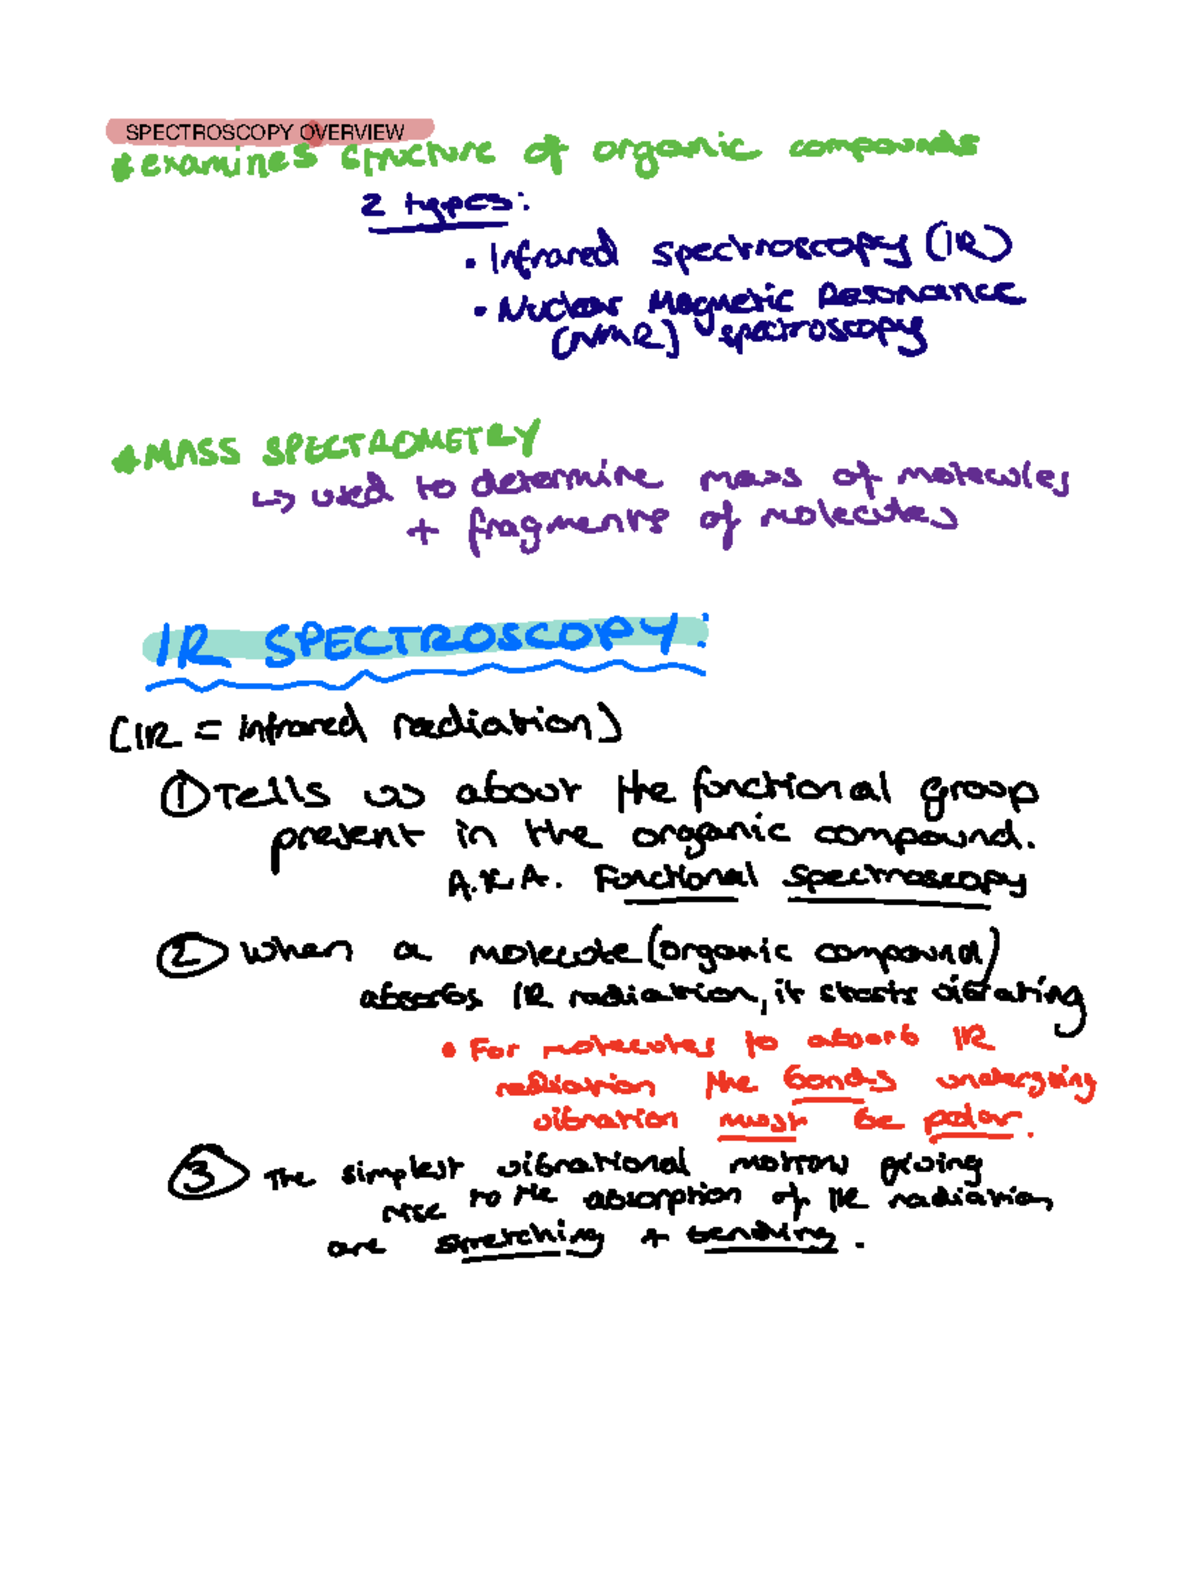 SPECTROSCOPY OVERVIEW
* examines structure of organic compounds
2 types:
• Infrared spectroscopy (IR)
• Nuclear Magnetic Resonance
(NMR) spectroscopy
* MASS SPECTROMETRY
↳ used to determine mass of molecules
+ fragments of molecules
IR SPECTROSCOPY:
(IR = Infrared radiation)
① Tells us about the functional group
present in the organic compound.
A.K.A. Functional Spectroscopy
② When a molecule (organic compound)
absorbs IR radiation, it starts vibrating
• For molecules to absorb IR
radiation the bonds undergoing
vibration must be polar.
③ The simplest vibrational motions giving
rise to the absorption of IR radiation
are stretching + bending.